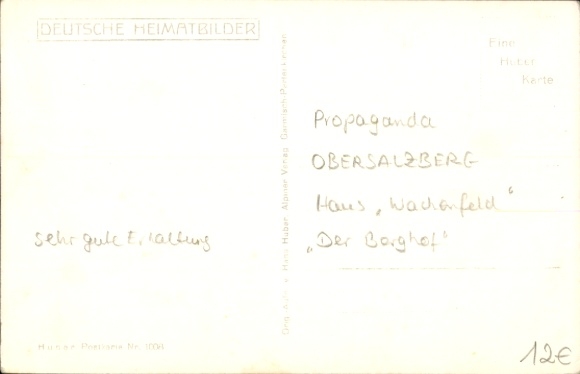 DEUTSCHE HEIMATBILDER
Eine
Huber
Karte
Propaganda
OBERSALZBERG
Haus „Wachenfeld"
„Der Berghof"
sehr gute Erhaltung
Orig. Aufn. u. Hans Huber Alpiner Verlag Garmisch-Partenkirchen
Huber Nr.
12€